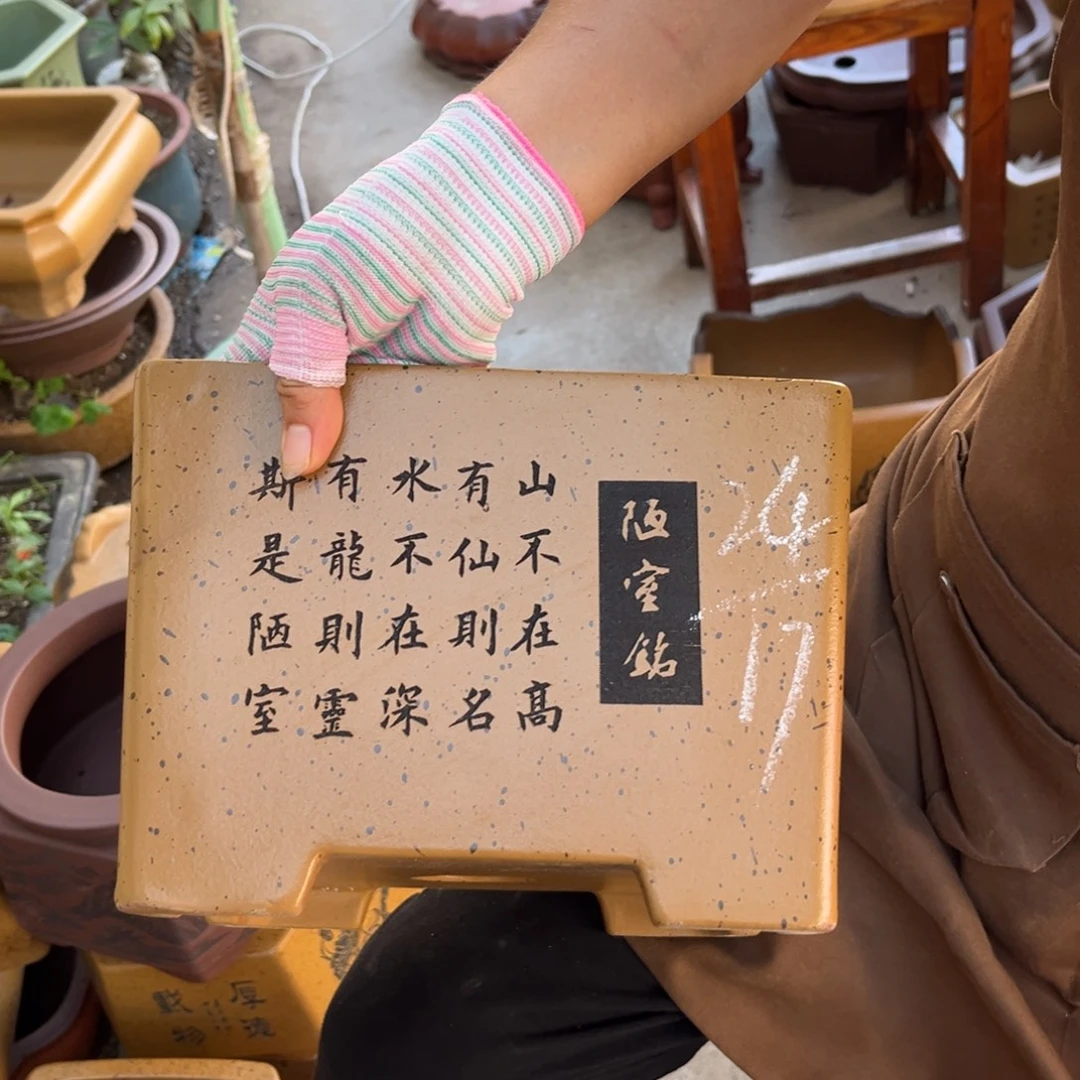 陋室銘
山不在高
有仙則名
水不在深
有龍則靈
斯是陋室
24
17
厚德
載物